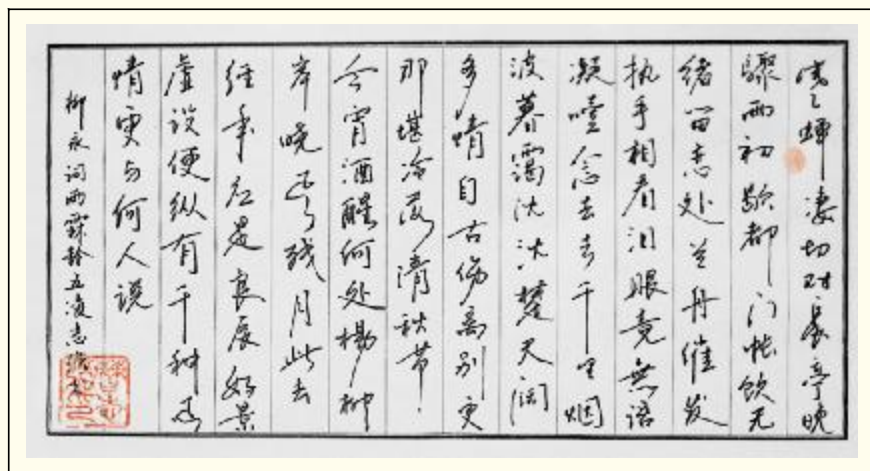 寒蝉凄切对长亭晚
骤雨初歇都门帐饮无
绪留恋处兰舟催发
执手相看泪眼竟無语
凝噎念去去千里烟
波暮霭沈沈楚天阔
多情自古伤离别更
那堪冷落清秋节
今宵酒醒何处楊柳
岸晓风残月此去
经年应是良辰好景
虚设便纵有千种风
情更与何人说
柳永词雨霖铃